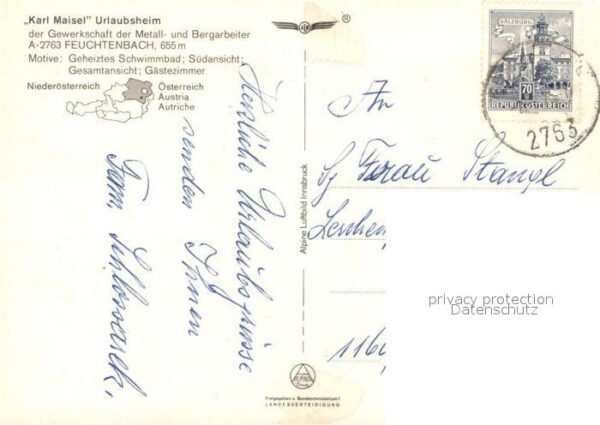 „Karl Maisel" Urlaubsheim
der Gewerkschaft der Metall- und Bergarbeiter
A-2763 FEUCHTENBACH, 655 m
Motive: Geheiztes Schwimmbad; Südansicht;
Gesamtansicht; Gästezimmer
Niederösterreich
Österreich
Austria
Autriche
®
Herzliche Urlaubsgrüsse
senden Ihnen
Fam.
Alpine Luftbild Innsbruck
ALPINE
Freigegeben v. Bundesministerium f.
LANDESVERTEIDIGUNG
SALZBURG
70
REPUBLIK ÖSTERREICH
2763
An
Frau Stangl
1160
privacy protection
Datenschutz